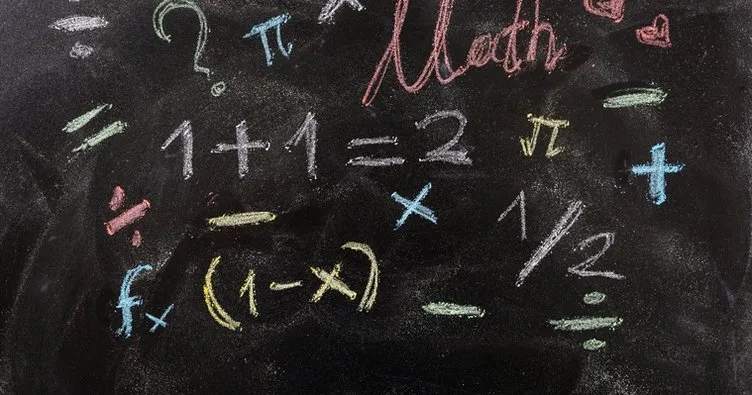 ÷ ? π × Math
= 1 + 1 = 2 π −
÷ − × 1/2 +
fx (1 - x) − ÷